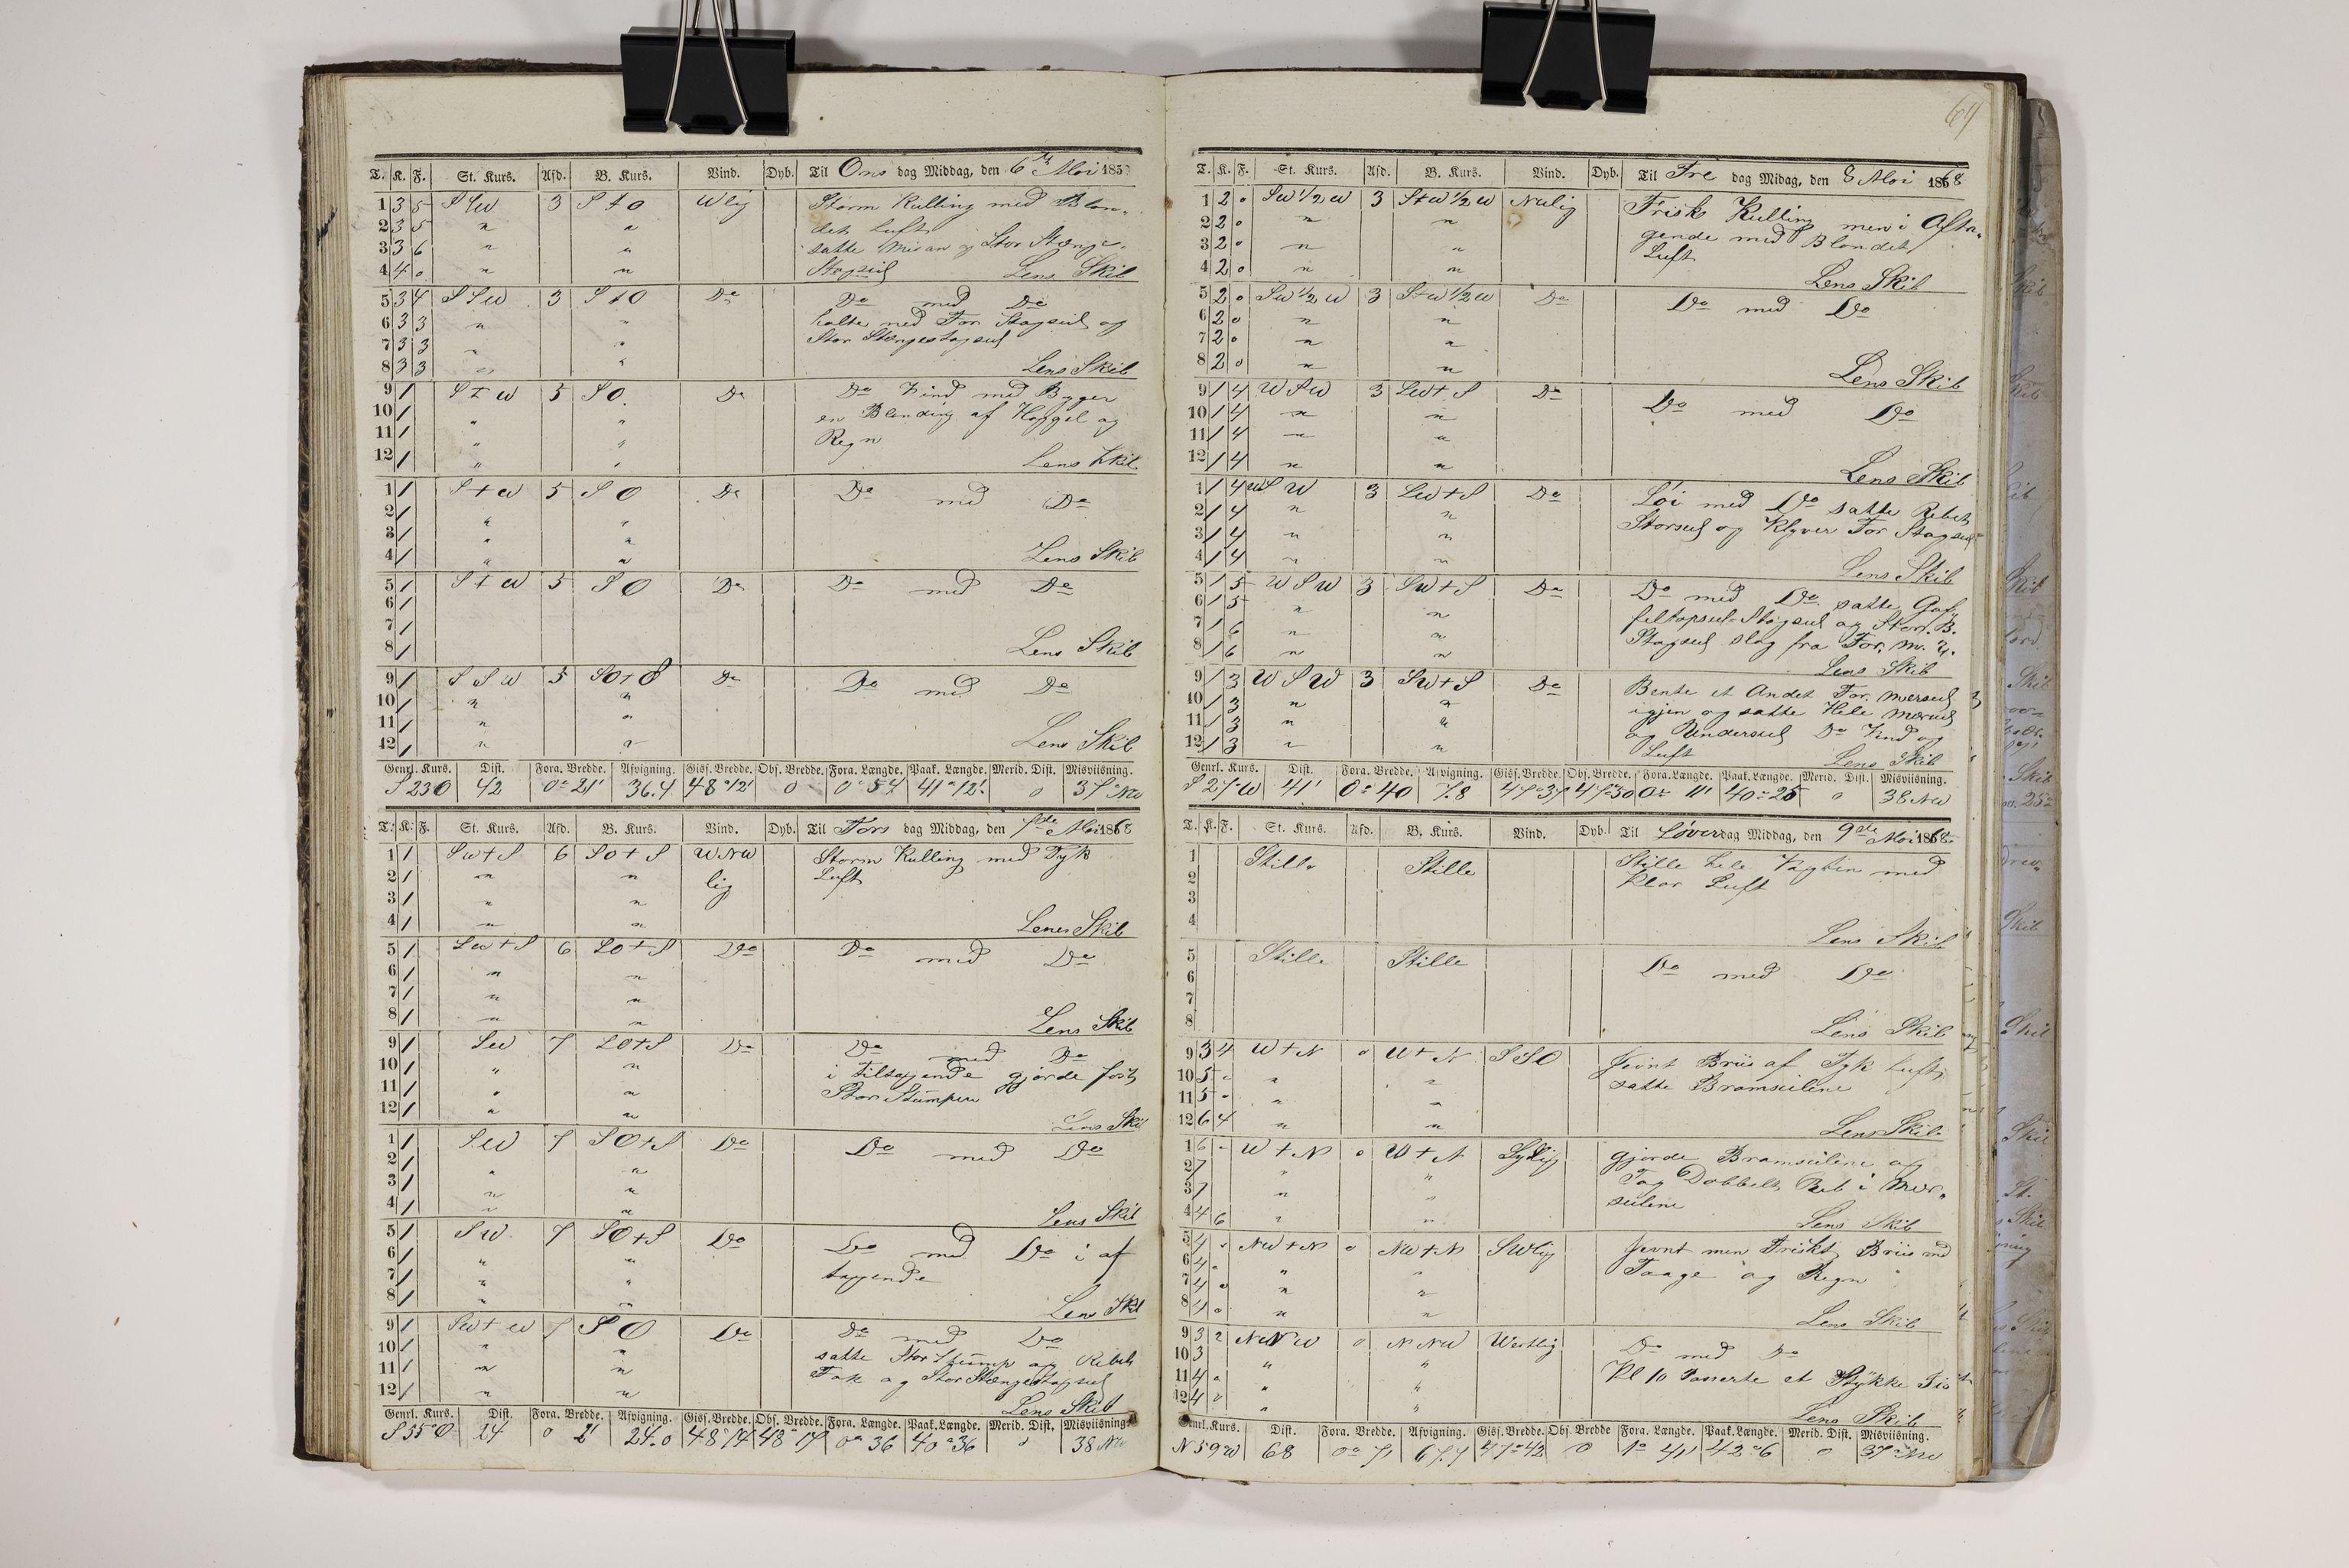 64
T. K. F. St. Kurs. Afd. B. Kurs. Vind. Dyb. Til Ons dag Middag, den 6te Mai 185
1 3 5 S S W 3 S t O W lig Storm Kulling med Blan-
2 3 5 " " det Luft
3 3 6 " " satte Mesan og Stor Stænge-
4 4 0 " " Stagseil Lens Skib
5 3 4 S S W 3 S t O Do Do med Do
6 3 3 " " halte ned For Stagseil og
7 3 3 " " Stor Stængestagseil
8 3 3 " " Lens Skib
9 / S t W 5 S O. Do Do Vind med Byger
10 / " " en Blanding af Haggel og
11 / " " Regn
12 / " " Lens Skib
1 / S t W 5 S O Do Do med Do
2 / " "
3 / " "
4 / " " Lens Skib
5 / S t W 5 S O Do Do med Do
6 /
7 /
8 / Lens Skib
9 / S S W 5 SO t S Do Do med Do
10 / " "
11 / " "
12 / " " Lens Skib
Genrl. Kurs. Dist. Fora. Bredde. Afvigning. Gisf. Bredde. Obs. Bredde. Fora. Længde. Paak. Længde. Merid. Dist. Misviisning.
S 23 O 42 0° 21' 36.4 48° 12' 0 0° 54 41° 12' 0 37° NW
T. K. F. St. Kurs. Afd. B. Kurs. Vind. Dyb. Til Tors dag Middag, den 7de Mai 1868
1 / SW t S 6 SO t S WNW Storm Kulling med Tyk
2 / " " lig Luft
3 / " "
4 / " " Lens Skib
5 / SW t S 6 SO t S Do Do med Do
6 / " "
7 / " "
8 / " " Lens Skib
9 / SW 7 SO t S Do Do med Do
10 / " " i tiltagende gjorde fast
11 / " " Stor Stumpen
12 / " " Lens Ski
1 / SW 7 SO t S Do Do med Do
2 / " "
3 / " "
4 / " " Lens Skib
5 / SW 7 SO t S Do Do med Do i af
6 / " " tagende
7 / " "
8 / " " Lens Skl
9 / SW t W 7 S O Do Do med Do
10 / " " satte Stor Stump og Rebet
11 / " " Fok og Stor Stængestagseil
12 / " " Lens Skib
Genrl. Kurs. Dist. Fora. Bredde. Afvigning. Gisf. Bredde. Obs. Bredde. Fora. Længde. Paak. Længde. Merid. Dist. Misviisning.
S 55° O 24 0 2' 24.0 48 14 48° 17 0° 36 40° 36 0 38 NW
T. K. F. St. Kurs. Afd. B. Kurs. Vind. Dyb. Til Fre dag Midag, den 8 Mai 1868
1 2 0 SW 1/2 W 3 S t W 1/2 W NW lig Frisk Kulling men i Afta-
2 2 0 " " gende med Blandet
3 2 0 " " Luft
4 2 0 " " Lens Skib
5 2 0 SW 1/2 W 3 S t W 1/2 W Do Do med Do
6 2 0 " "
7 2 0 " "
8 2 0 " " Lens Skib
9 / 4 W S W 3 SW t S Do Do med Do
10 / 4 " "
11 / 4 " "
12 / 4 " " Lens Skib
1 / 4 W S W 3 SW t S Do Løi med Do satte Rebet
2 / 4 " " Storseil og Klyver For Stagseil
3 / 4 " "
4 / 4 " " Lens Skib
5 / 5 W S W 3 SW t S Do Do med Do satte Gaf-
6 / 5 " " feltopseil Stagseil og Stor. B.
7 / 6 " " Stagseil slog fra For. M.
8 / 6 " " Lens Skib
9 / 3 W S W 3 SW t S Do Bente et Andet For. Merseil
10 / 3 " " igjen og satte Hele Merseil
11 / 3 " " og Underseil Do Vind og
12 / 3 " " Luft Lens Skib
Genrl. Kurs. Dist. Fora. Bredde. Afvigning. Gisf. Bredde. Obs. Bredde. Fora. Længde. Paak. Længde. Merid. Dist. Misviisning.
S 27° W 41' 0° 40 7.8 47° 37 47° 30 0° 11' 40° 25 0 38 NW
T. K. F. St. Kurs. Afd. B. Kurs. Vind. Dyb. Til Løver dag Middag, den 9de Mai 1868
1 Stille Stille Stille hele Vagten med
2 Klar Luft
3
4 Lens Skib
5 Stille Stille Do med Do
6
7
8 Lens Skib
9 3 4 W t N 0 W t N S S O Jevnt Briis af Tyk Luft
10 5 " " satte Bramseilene
11 5 " "
12 6 4 " " Lens Skib
1 6 W t N 0 W t N Sydlig gjorde Bramseilene og
2 7 " " Tog Dobbelt Reb i Mer-
3 7 " " seilene
4 4 6 " " Lens Skib
5 4 NW t N 0 NW t N SW lig Jevnt men Friskt Briis med
6 4 " " Taage og Regn
7 4 0 " "
8 4 0 " " Lens Skib
9 3 2 N N W 0 N NW Westlig Do med Do
10 3 " " Kl 10 Passerte et Stykke Tis
11 4 " "
12 4 " " Lens Skib
Genrl. Kurs. Dist. Fora. Bredde. Afvigning. Gisf. Bredde. Obs. Bredde Fora. Længde. Paak. Længde. Merid. Dist. Misviisning.
N 59 W 68 47° 42 0 1° 41 42° 6 0 37° NW